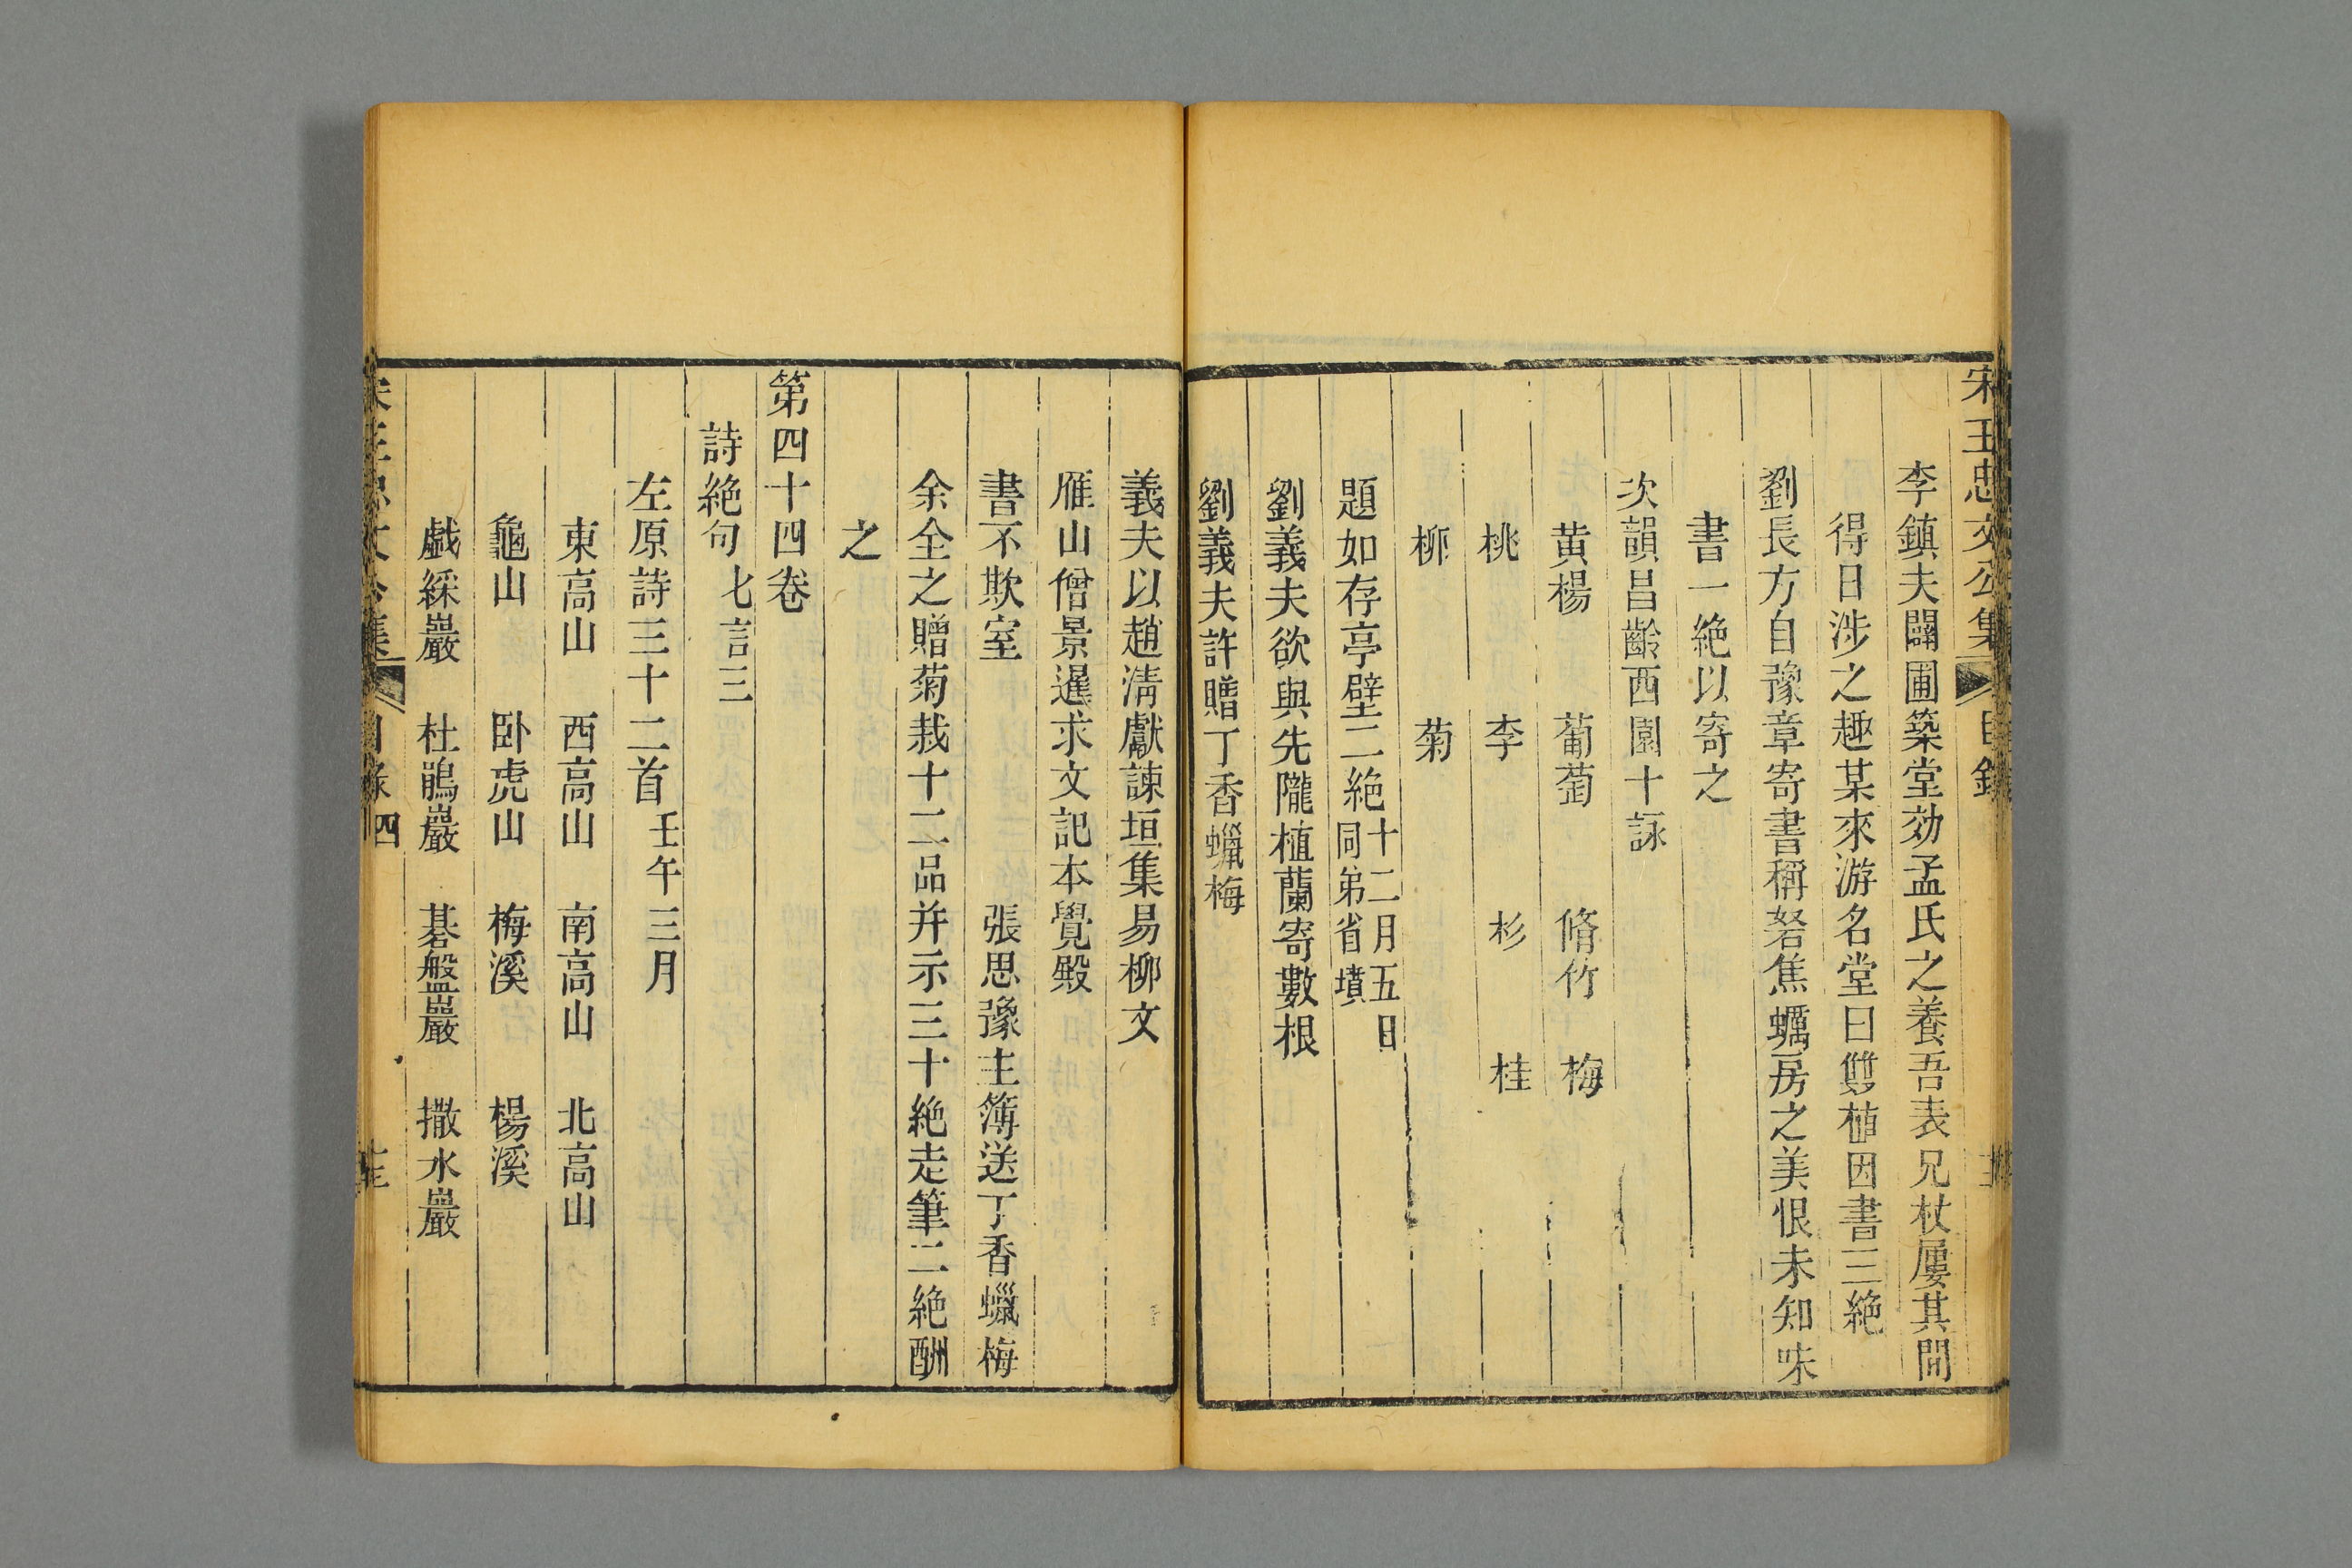 宋王忠文公集 目錄
李鎮夫闢圃築堂効孟氏之養吾表兄杖屨其間
得日涉之趣某來游名堂曰雙植因書三絶
劉長方自豫章寄書稱砮焦蠣房之美恨未知味
書一絶以寄之
次韻昌齡西園十詠
黄楊 葡萄 脩竹 梅
桃 李 杉 桂
柳 菊
題如存亭壁二絶十二月五日同弟省墳
劉義夫欲與先隴植蘭寄數根
劉義夫許贈丁香蠟梅
義夫以趙淸獻諫垣集易柳文
雁山僧景暹求文記本覺殿
書不欺室 張思豫主簿送丁香蠟梅
余全之贈菊栽十二品并示三十絶走筆二絶酬
之
第四十四卷
詩絶句七言三
左原詩三十二首壬午三月
東高山 西高山 南高山 北高山
龜山 卧虎山 梅溪 楊溪
戯綵巖 杜鵑巖 碁盤巖 撒水巖
宋王忠文公集 目錄四